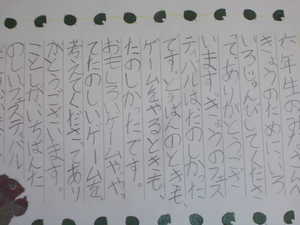 六年生のみなさん
きょうのためにいろん
いろじゅんびしてくださ
ってありがとうござ
います。きょうのフェス
ティバルはたのしかった
です。じゅんばんのときも、
ゲームをやるときも、
たのしかたです。
おもしろいゲームや、
てたのしいゲームを、
考えてくださってあり
がとうございます。
ことしがいちばんた
のしいフェスティバル